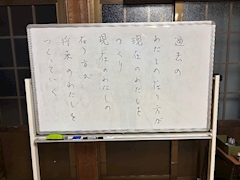 過去の
わたしのなり方が
現在のわたしを
つくり
現在のわたしの
なり方が
将来のわたしを
つくっていく